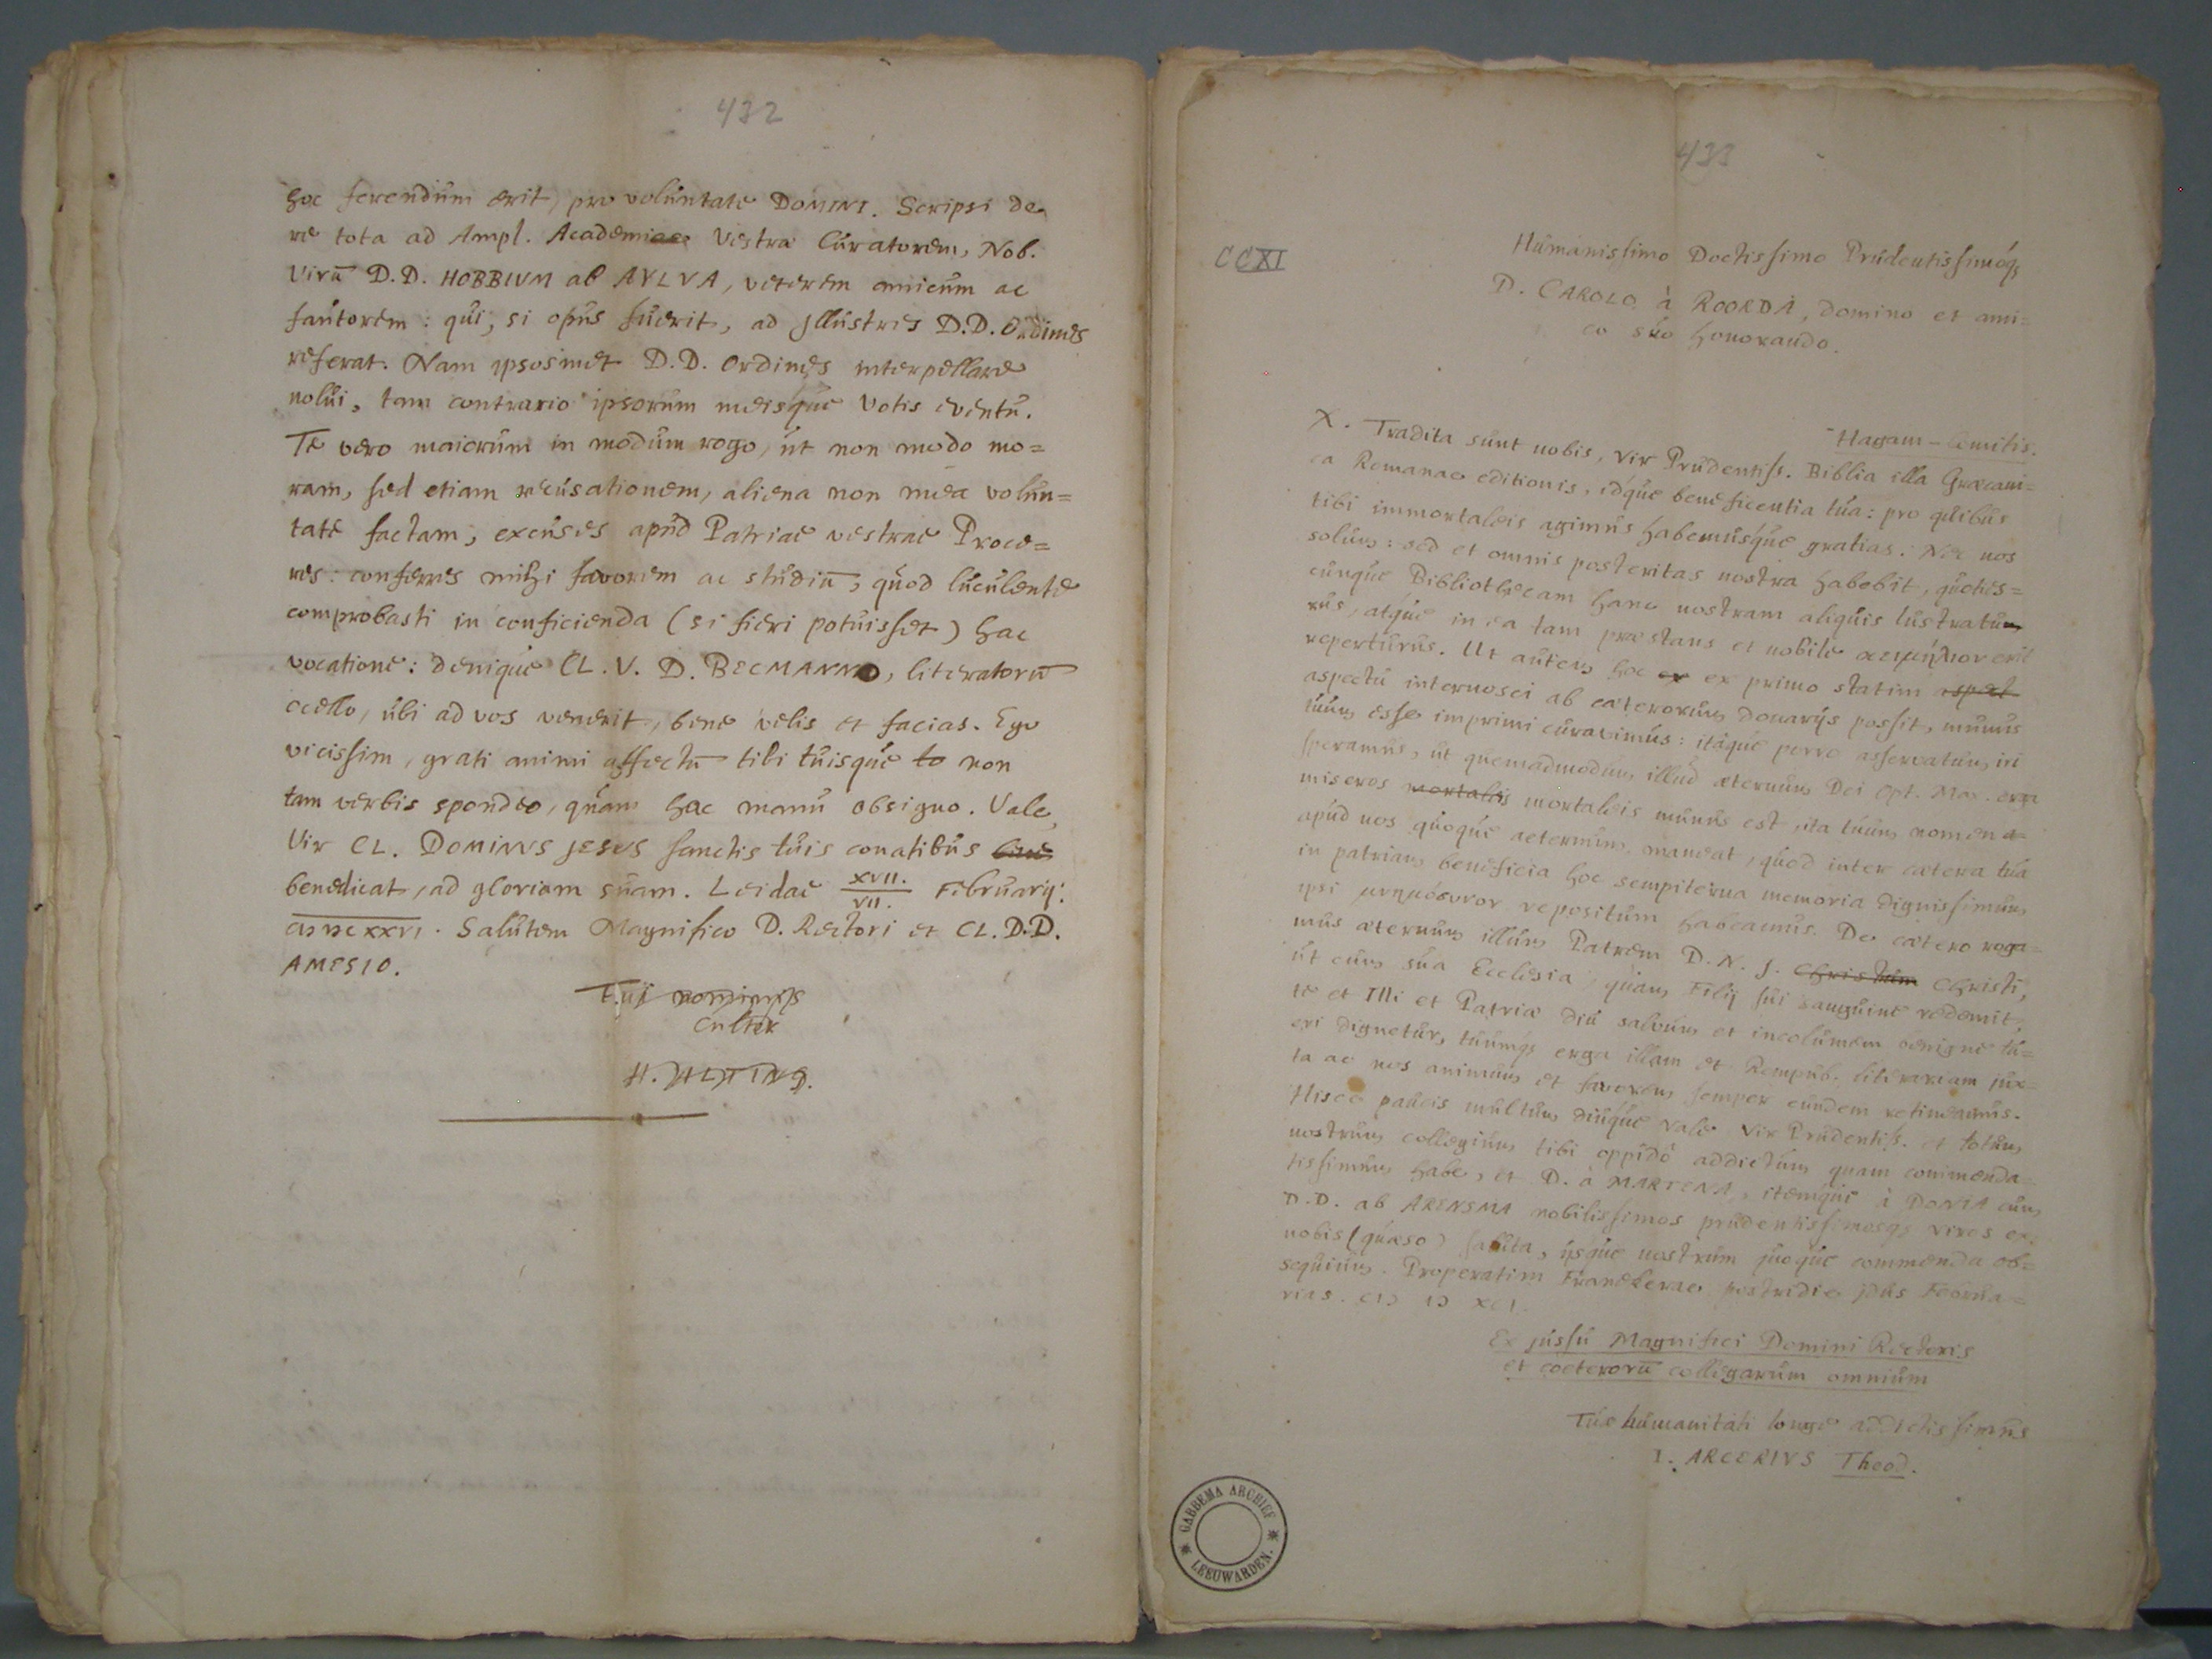 432
hoc ferendum erit, pro voluntate DOMINI. Scripsi de
re tota ad Ampl. Academiae Vestrae Curatorem, Nob.
Virū D.D. HOBBIUM ab AYLVA, veterem amicum ac
fautorem: qui, si opus fuerit, ad Jllustres D.D. Ordines
referat. Nam ipsosmet D.D. Ordines interpellare
nolui, tam contrario ipsorum meisque votis eventu.
Te vero maiorum in modum rogo, ut non modo mo=
ram, sed etiam recusationem, aliena non mea volun=
tate factam, excuses apud Patriae vestrae Proce=
res: conferres mihi favorem ac studiū, quod luculente
comprobasti in conficienda (si fieri potuisset) hac
vocatione: denique CL. V. D. BECMANNO, literatorū
ocello, ubi ad vos venerit, bene velis et facias. Ego
vicissim, grati animi affectū tibi tuisque to non
tam verbis spondeo, quam hac manu obsigno. Vale,
Vir CL. DOMINUS JESUS sanctis tuis conatibus bene
benedicat, ad gloriam suam. Leidae XVII./VII. Februarij.
CIƆ IƆC XXVI. Salutem Magnifico D. Rectori et CL. D.D.
AMESIO.
Tui nominis
Cultor
H. ALTING.
433
CCXI
Humanissimo Doctissimo Prudentissimoq;
D. CAROLO à ROORDA, Domino et ami=
co suo honorando.
Hagam-Comitis.
X. Tradita sunt nobis, Vir Prudentiss. Biblia illa Graecani=
ca Romanae editionis, idque beneficentia tua: pro quibus
tibi immortaleis agimus habemusque gratias. Nec nos
solum: sed et omnis posteritas nostra habebit, quoties=
cunque Bibliothecam hanc nostram aliquis lustratu=
rus, atque in ea tam praestans et nobile κειμήλιον erit
reperturus. Ut autem hoc ex ex primo statim aspect
aspectu internosci ab caeterorum donarijs possit, munus
tuum esse imprimi curavimus: itaque porro asservatum iri
speramus, ut quemadmodum illud aeternum Dei Opt. Max. erga
miseros mortaleis mortaleis munus est, ita tuum nomen a=
apud nos quoque aeternum maneat, quod inter caetera tua
in patriam beneficia hoc sempiterna memoria dignissimum
ipsi μνημόσυνον repositum habeamus. De caetero roga=
mus aeternum illum Patrem D. N. J. Christum Christi,
ut cum sua Ecclesia, quam Filij sui sanguine redemit,
te et Illi et Patriae diu salvum et incolumem benigne tu=
eri dignetur, tuumq; erga illam et Rempub. literariam jux=
ta ac nos animum et favorem semper eundem retineamus.
Hisce paucis multum diuque vale Vir Prudentiss. et totum
nostrum collegium tibi oppidò addictum quam commenda=
tissimum habe, et D. à MARTENA, itemque à DONIA cum
D.D. ab ARENSMA nobilissimos prudentissimosq; viros ex
nobis (quaeso) saluta, ijsque nostrum quoque commenda ob=
sequium. Properatim Franekerae postridie jdus Februa=
rias. CIƆ IƆ XCI.
Ex jussu Magnifici Domini Rectoris
et coeterorū collegarum omnium
Tuae humanitati longe addictissimus
I. ARCERIVS Theod.
GABBEMA ARCHIEF
LEEUWARDEN.